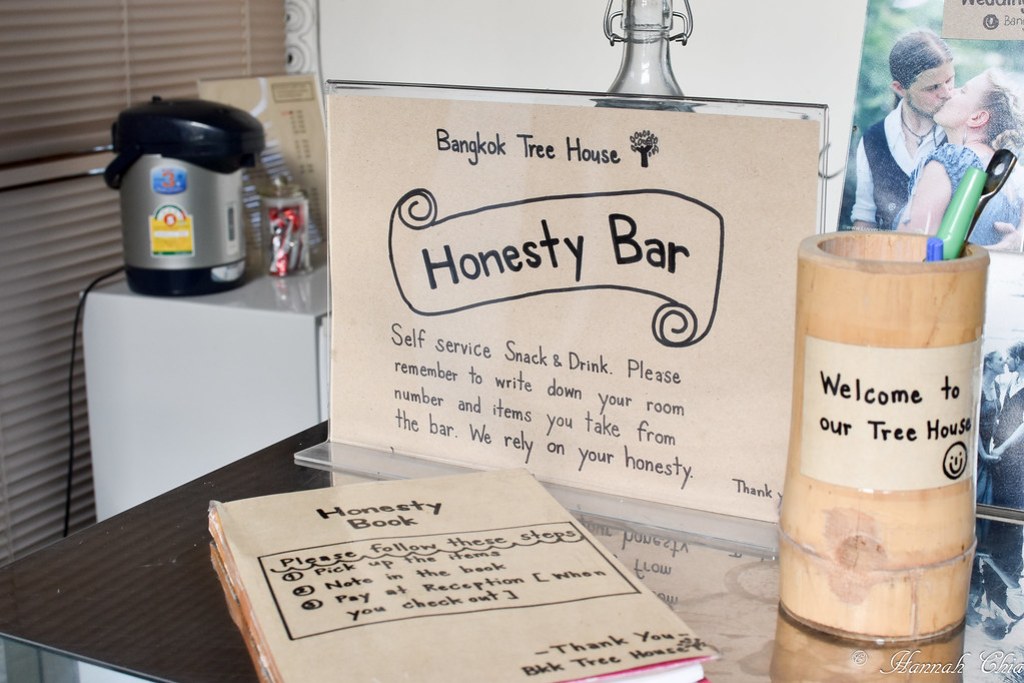 Bangkok Tree House
Honesty Bar
Self service Snack & Drink. Please
remember to write down your room
number and items you take from
the bar. We rely on your honesty.
Thank
Honesty
Book
Please follow these steps
① Pick up the items
② Note in the book
③ Pay at Reception [ When
you check out ]
- Thank You -
Bkk Tree House
Welcome to
our Tree House
your honesty
from
Wedding
© Hannah Chia